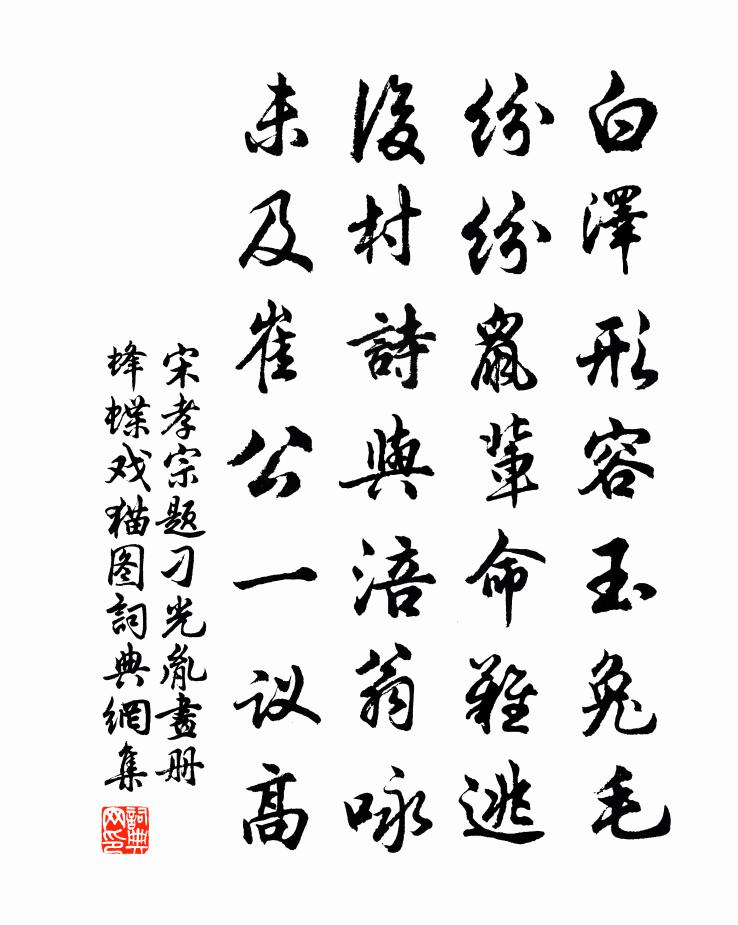 白澤形容玉兔毛
紛紛鼠輩命難逃
後村詩與涪翁咏
未及崔公一议高
宋孝宗题刁光胤畫册
蜂蝶戏猫图詞典網集
詞典网印